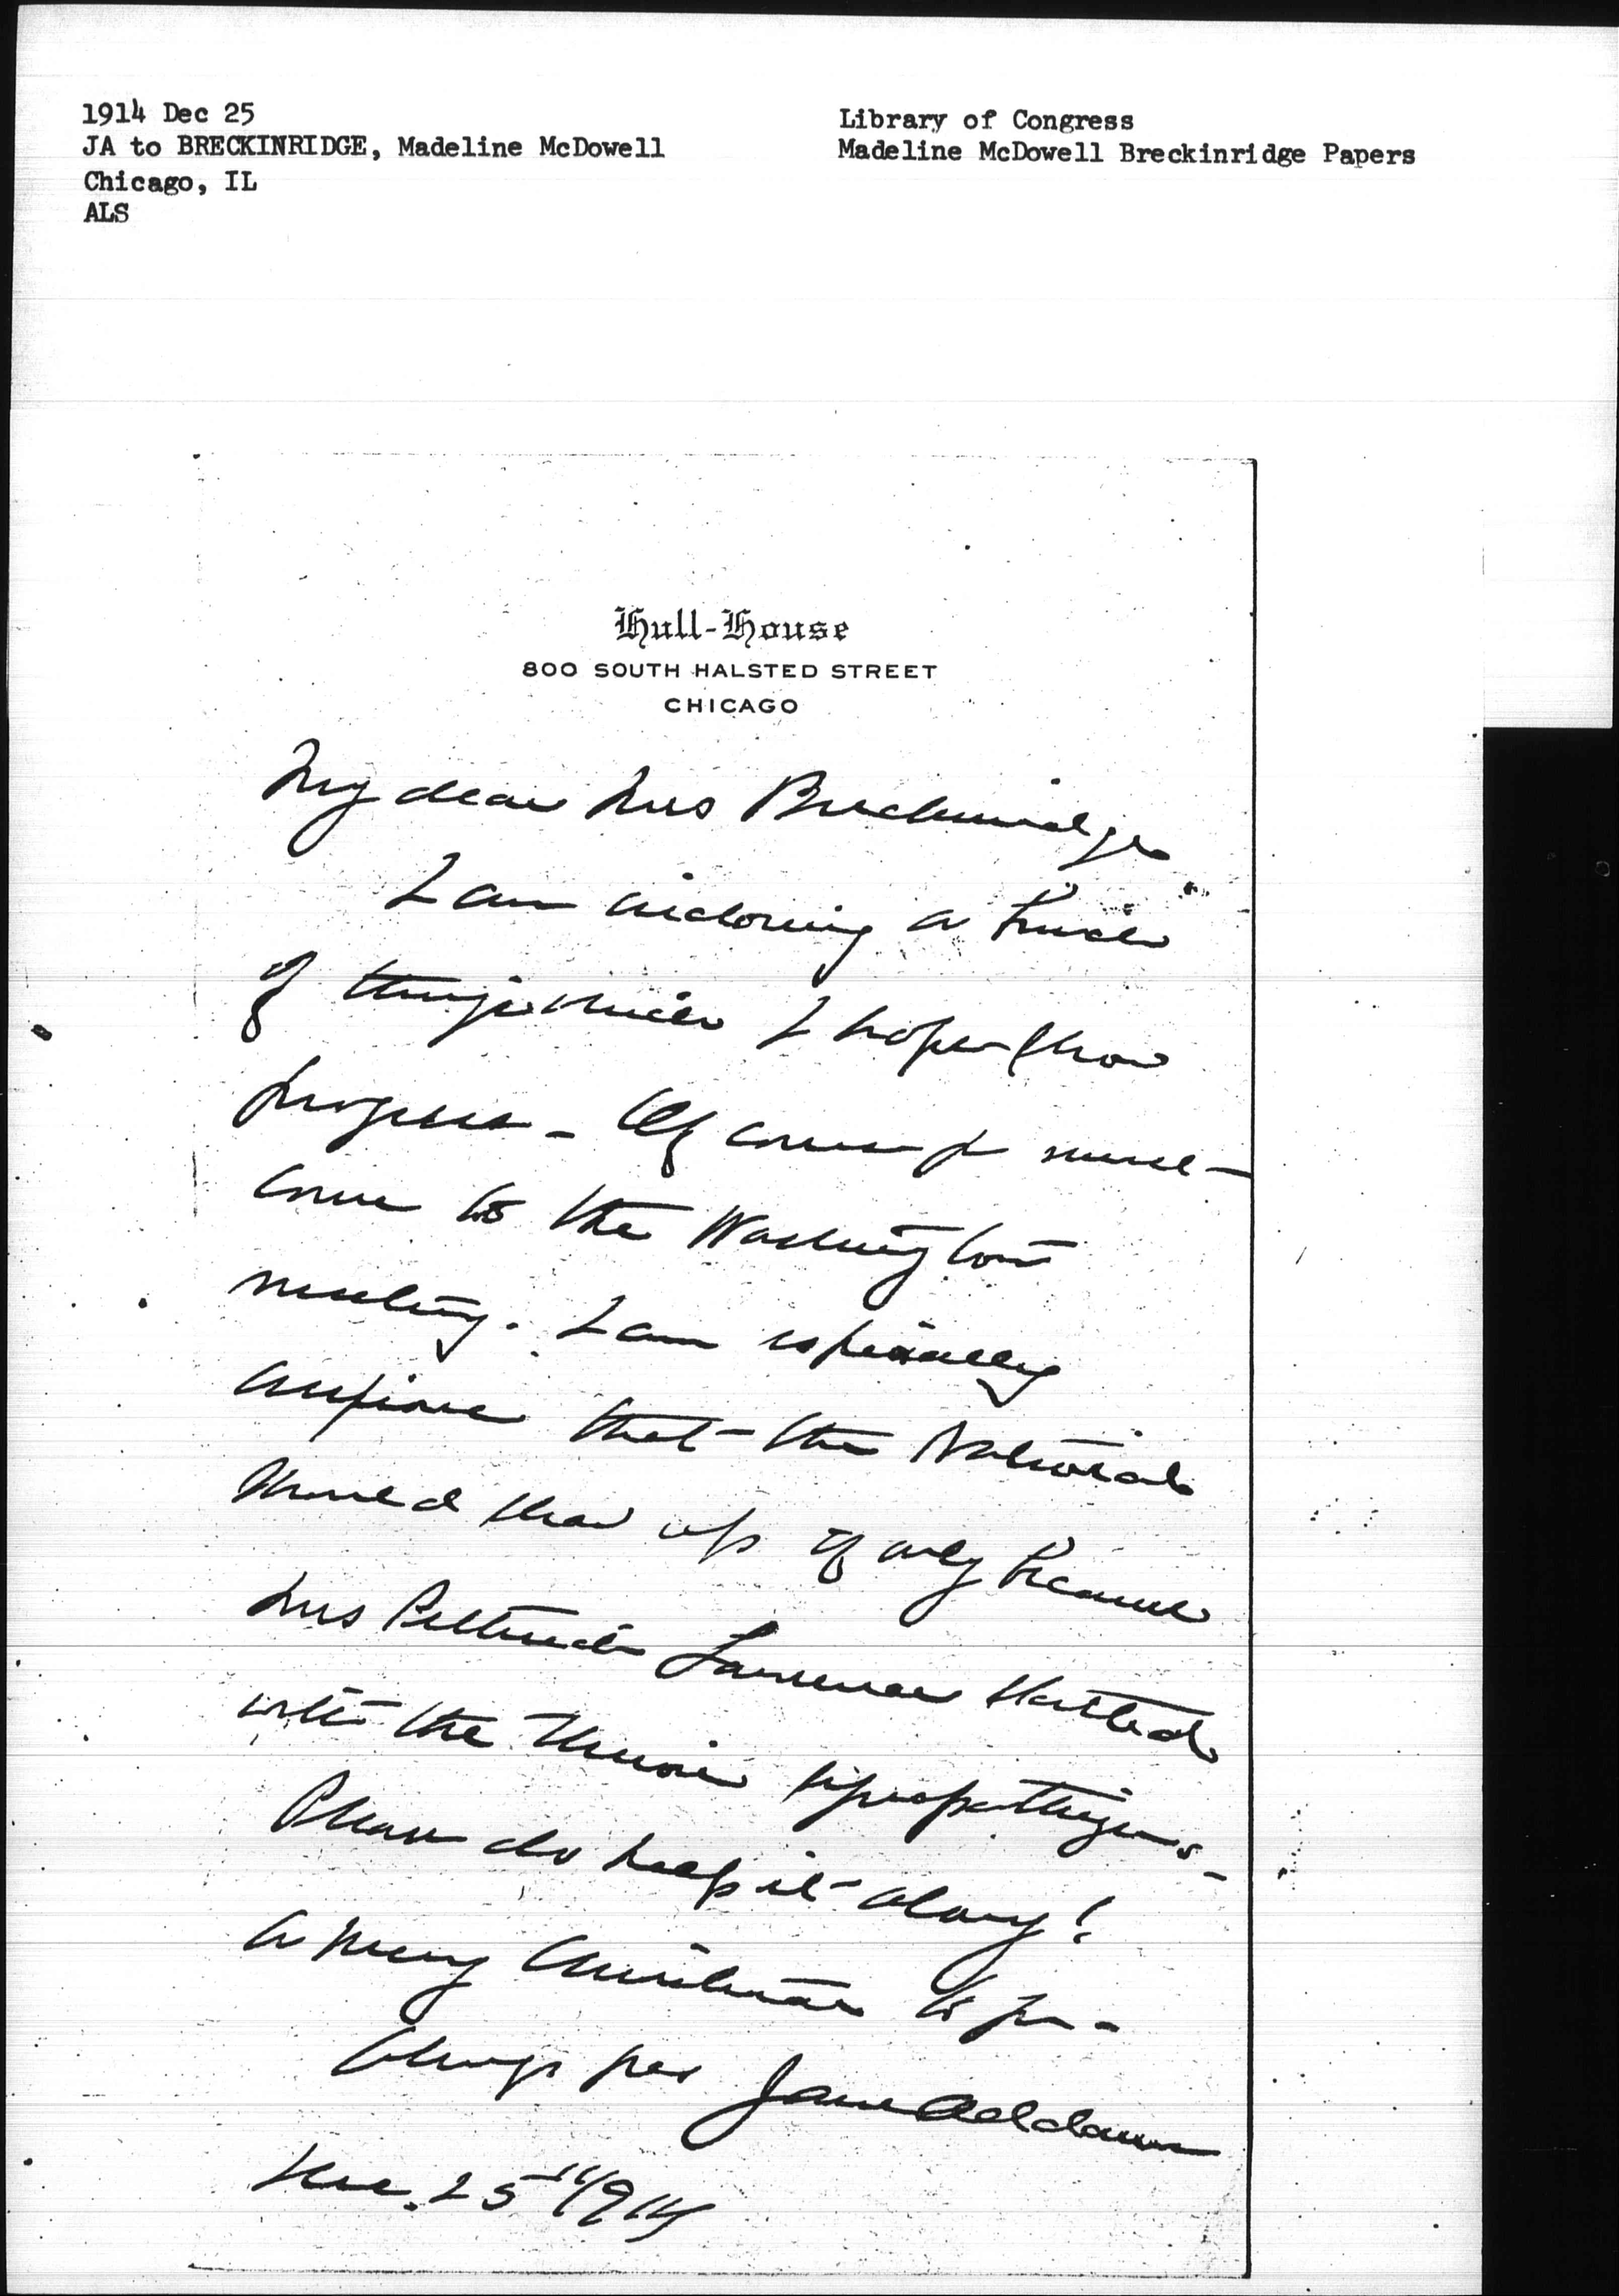 1914 Dec 25
JA to BRECKINRIDGE, Madeline McDowell
Chicago, IL
ALS
Library of Congress
Madeline McDowell Breckinridge Papers
Hull-House
800 SOUTH HALSTED STREET
CHICAGO
My dear Mrs Breckinridge
I am inclosing a bunch
of things which I hope show
progress - Of course you must
come to the Washington
meeting. I am especially
anxious that the National
should show up if only because
Mrs Pethick Lawrence started
with the Union sympathizers -
Please do help it along!
A merry Christmas to you -
Always yours Jane Addams
Dec. 25" 1914